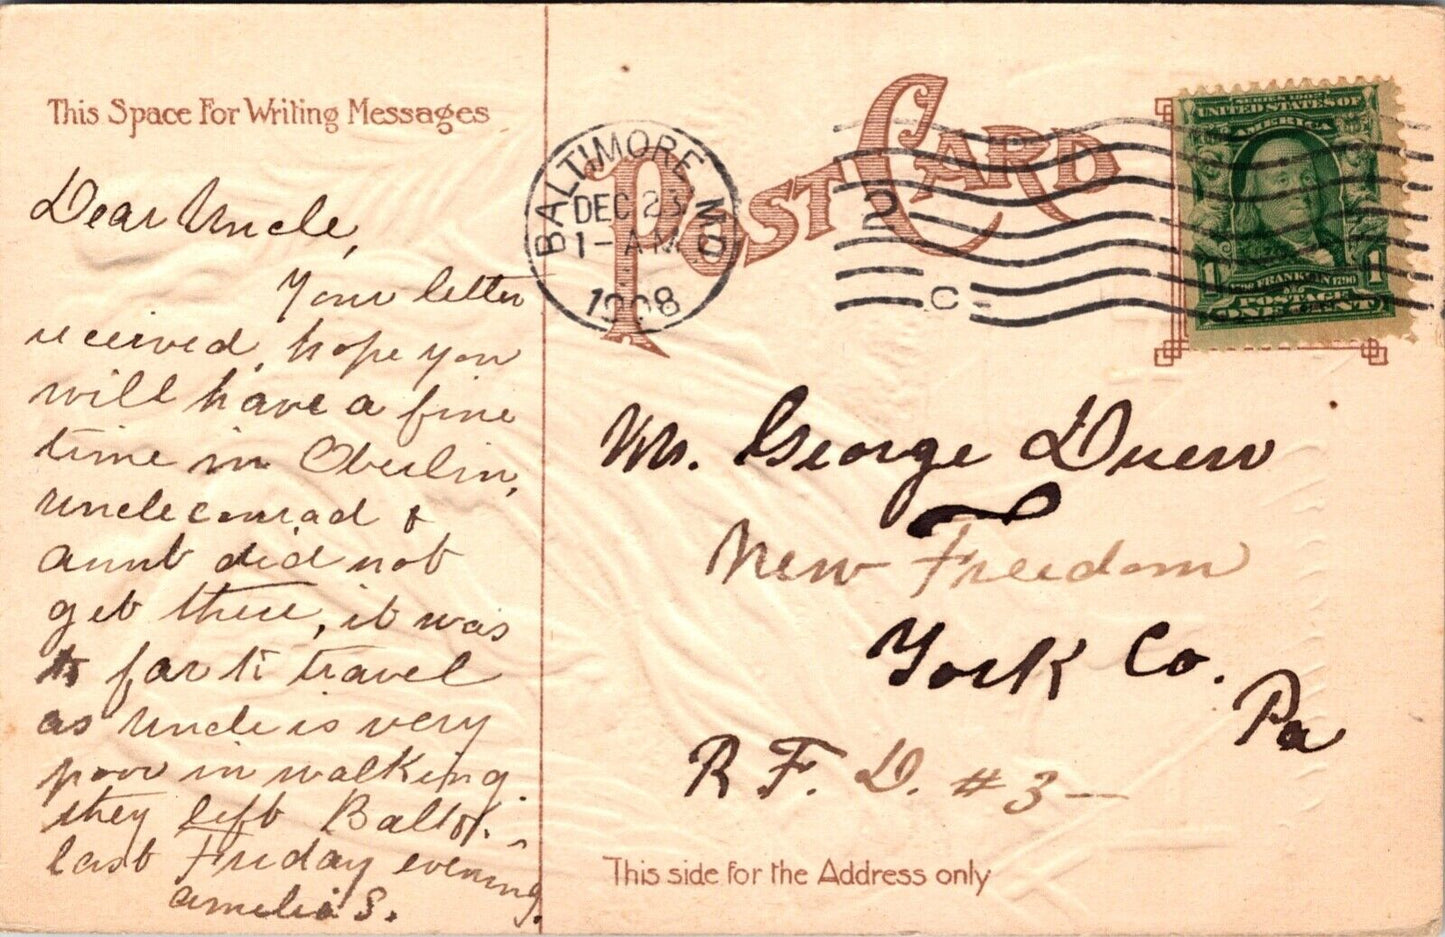 This Space For Writing Messages
Dear Uncle,
Your letter
received, hope you
will have a fine
time in Oberlin,
Uncle Conrad &
aunt did not
get there, it was
to far to travel
as Uncle is very
poor in walking.
they left Balto.
last Friday evening.
Amelia S.
POST CARD
BALTIMORE, MD
DEC 23
1-AM
1908
2
C
SERIES 1902
UNITED STATES OF
AMERICA
1706 FRANKLIN 1790
1 1
POSTAGE
ONE CENT
Mr. George Duerr
New Freedom
York Co.
Pa
R. F. D. #3—
This side for the Address only